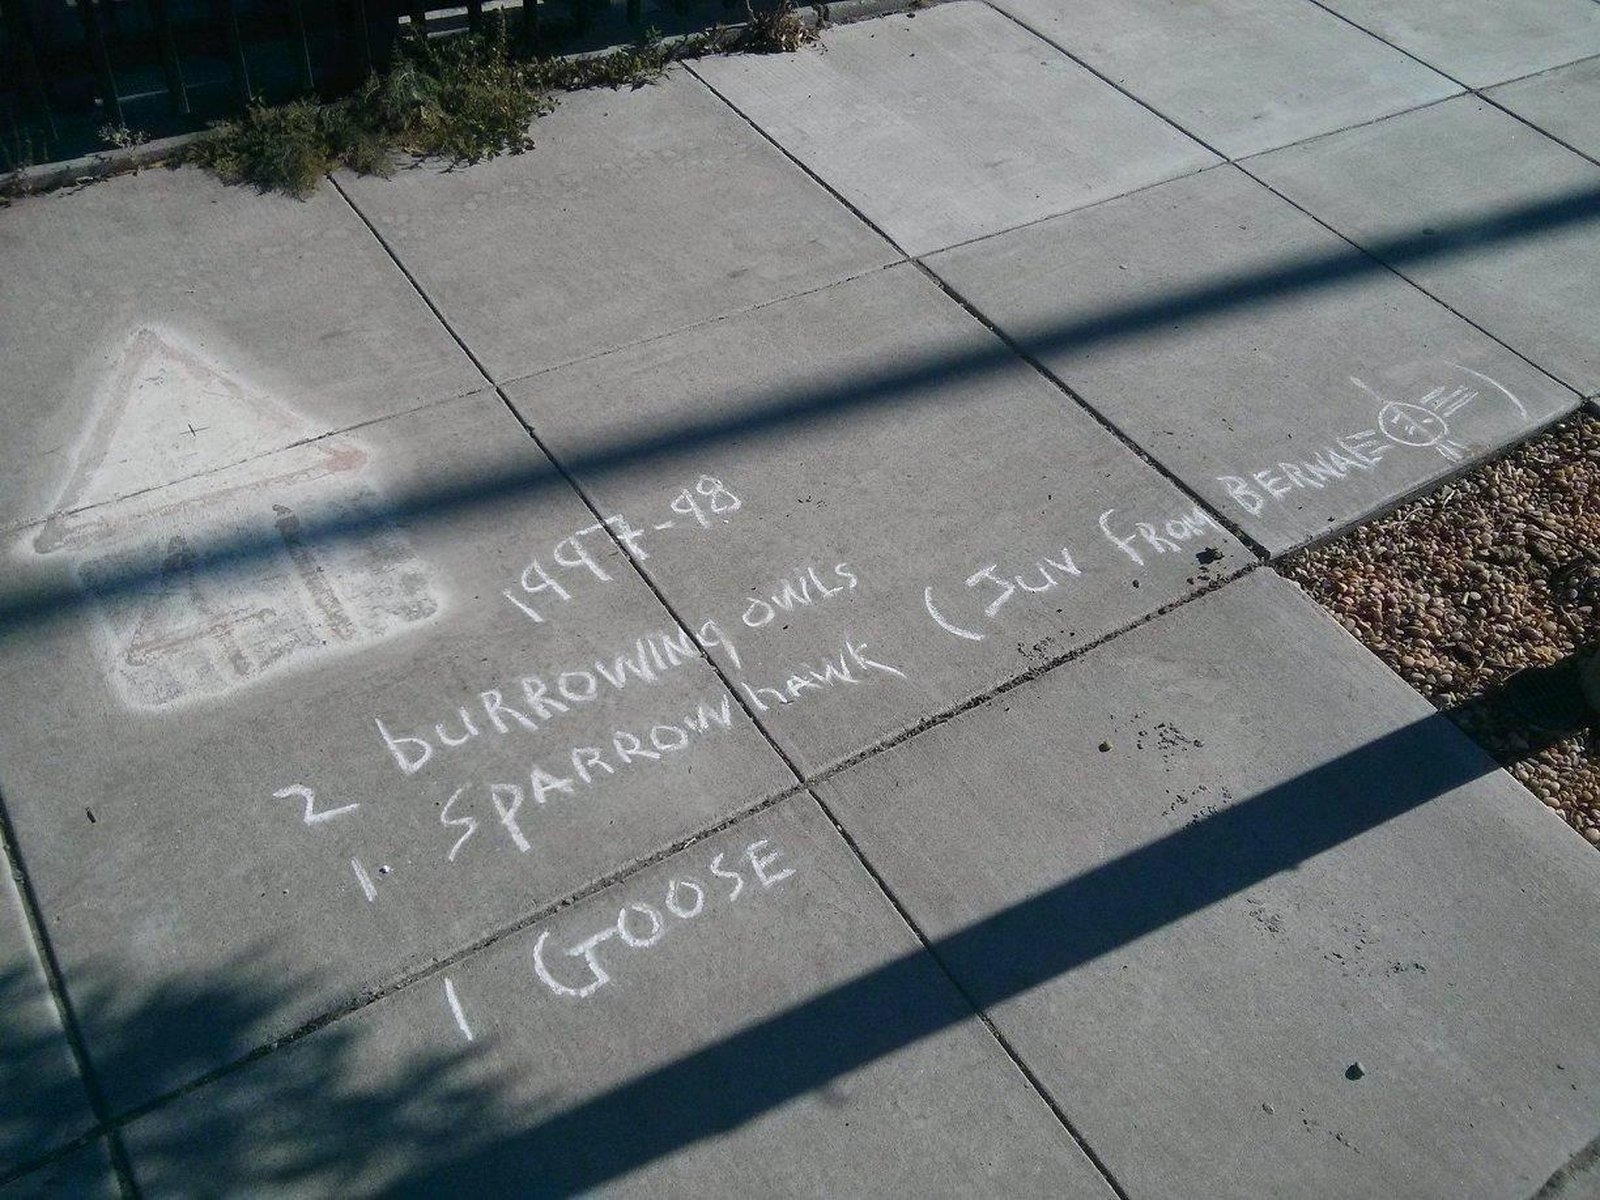 1997-98
2 burrowing owls
1. Sparrowhawk (Juv from Bernal)
1 Goose